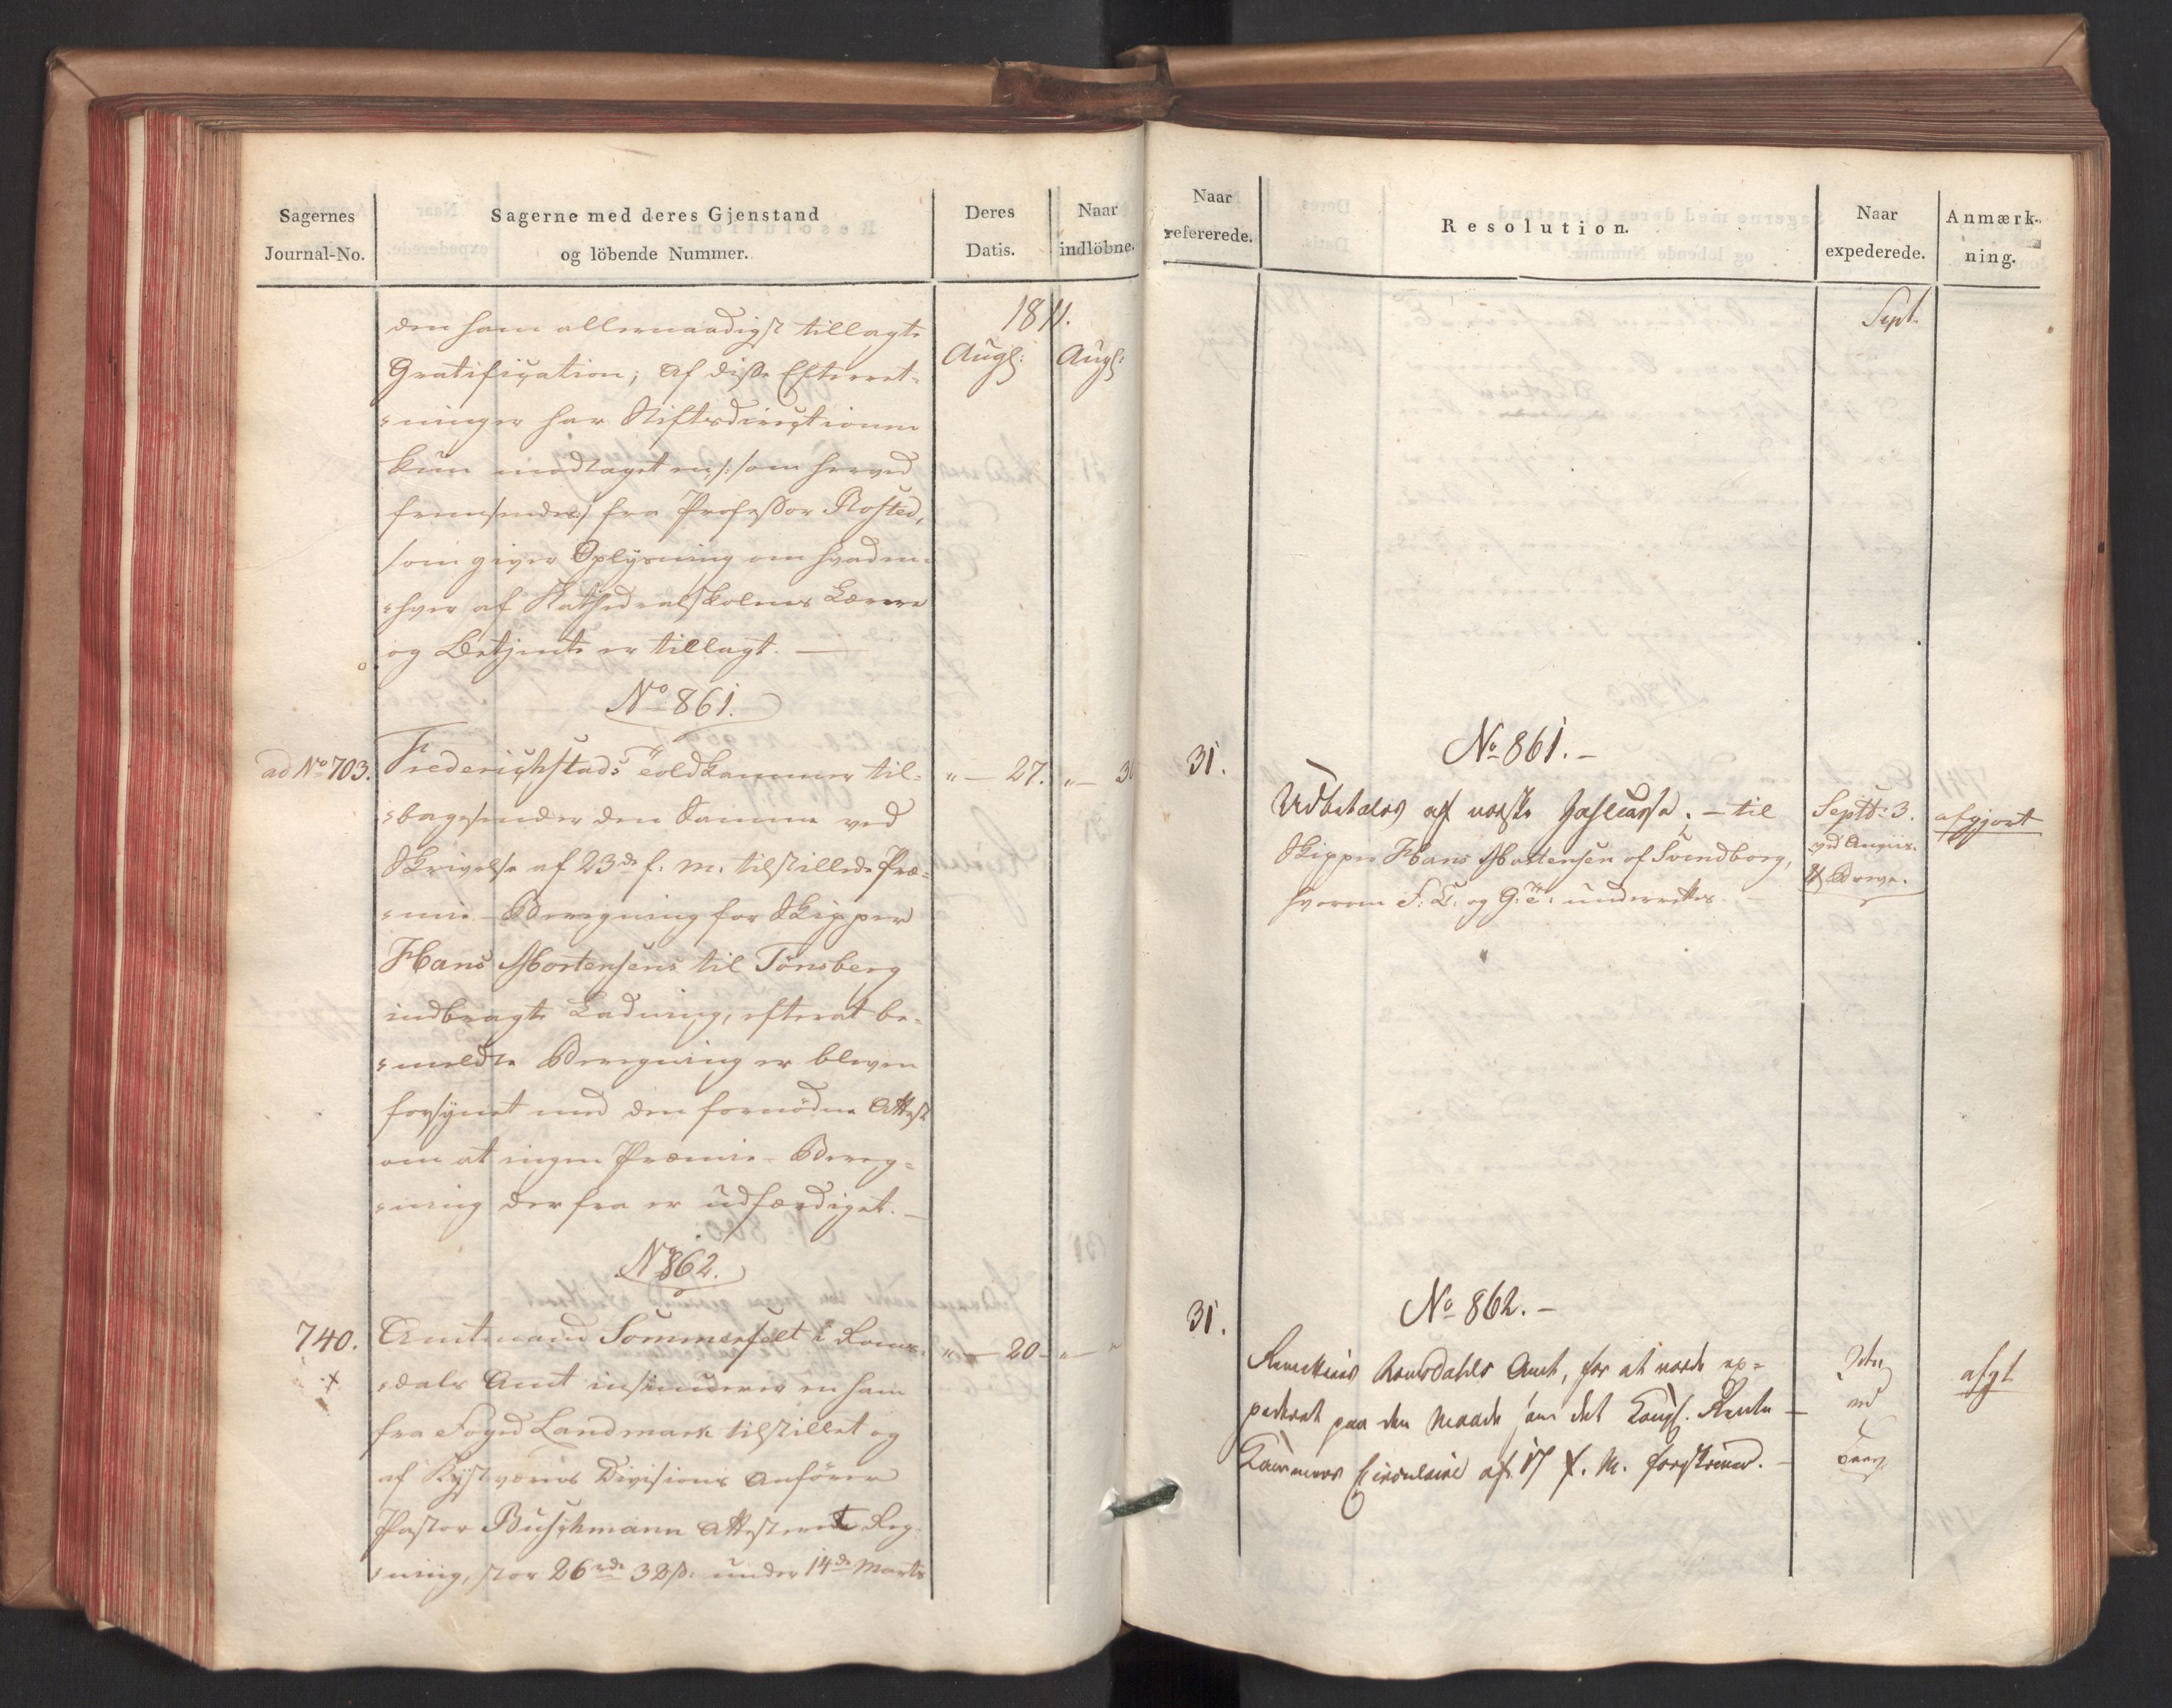 Sagernes
Journal-No.
Sagerne med deres Gjenstand
og löbende Nummer.
Deres
Datis.
Naar
indlöbne.
1811.
Augs:
Augs:
den ham allernaadigst tillagte
Gratification; af disse Efterret-
-ninger har Stiftsdirectionen
kun modtaget en /: som herved
fremsendes :/ fra Professor Rosted,
som giver Oplysning om hvad en-
-hver af Kathedralskolens Lærere
og Betjente er tillagt. —
No 861.
ad No 703.
Frederichstads Toldkammer til-
-bagesender den samme ved
Skrivelse af 23de f. M. tilstillede Præ-
-mie-Beregning for Skipper
Hans Mortensens til Tönsberg
indbragte Ladning, efterat be-
-meldte Beregning er bleven
forsynet med den fornödne Attest
om at ingen Præmie-Bereg-
-ning derfra er udfærdiget. —
" — 27.
" — 30
No 862.
740.
Amtmand Sommerfelt i Roms-
-dals Amt insinuerer en ham
fra Foged Landmark tilstillet og
af Kystværns Divisions Anförer
Pastor Buschmann Attesteret Reg-
-ning, stor 26 rdr 32 s: under 14de Marts
" — 20 –
" — "
Naar
refererede.
Resolution.
Naar
expederede.
Anmærk-
ning.
Sept.
31.
No 861. –
Udbetales af norske Zahlcasse. – til
Skipper Hans Mortensen af Svendborg,
hvorom F. T. og G. T. underrettes. –
Septb: 3.
ved Anviis.
& Breve.
afgjort
31.
No 862. –
Remitteres Romsdahls Amt, for at vorde ex-
pederet paa den Maade som det Kongl. Rente –
Kammers Circulaire af 17 f. M. foreskriver. –
ved
afgt